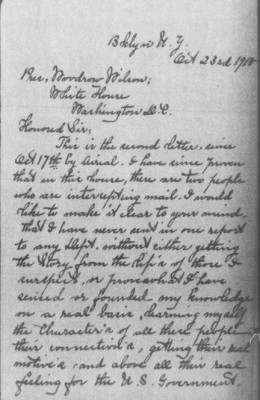 Bklyn N.Y.
Oct 23rd 1918
Pres. Woodrow Wilson;
White House
Washington D.C.
Honored Sir;
This is the second letter, since
Oct 17th by Aerial. I have since proven
that in this house, there are two people
who are intercepting mail. I would
like to make it clear to your mind,
that I have never sent in one report
to any Dept. without either getting
the story from the lips of those I
suspect, or provocalist I have
seized or founded my knowledge
on a real basis, learning myself
the character's of all these people
their connection's, getting their real
motive's, and above all their real
feeling for the U.S. Government.